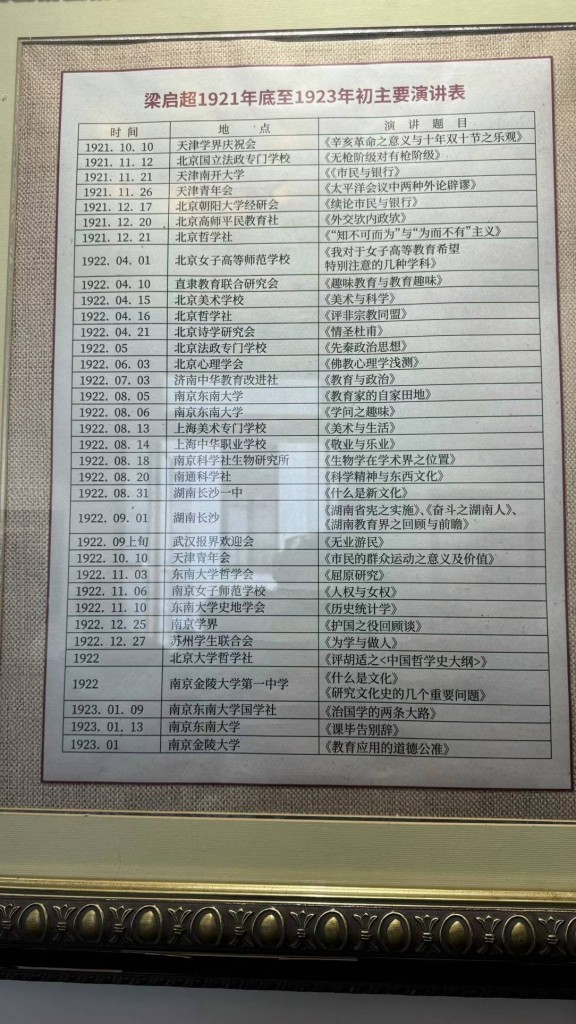 梁启超1921年底至1923年初主要演讲表
时 间 地 点 演 讲 题 目
1921. 10. 10 天津学界庆祝会 《辛亥革命之意义与十年双十节之乐观》
1921. 11. 12 北京国立法政专门学校 《无枪阶级对有枪阶级》
1921. 11. 21 天津南开大学 《《市民与银行》
1921. 11. 26 天津青年会 《太平洋会议中两种外论辟谬》
1921. 12. 17 北京朝阳大学经研会 《续论市民与银行》
1921. 12. 20 北京高师平民教育社 《外交欤内政欤》
1921. 12. 21 北京哲学社 《“知不可而为”与“为而不有”主义》
1922. 04. 01 北京女子高等师范学校 《我对于女子高等教育希望
特别注意的几种学科》
1922. 04. 10 直隶教育联合研究会 《趣味教育与教育趣味》
1922. 04. 15 北京美术学校 《美术与科学》
1922. 04. 16 北京哲学社 《评非宗教同盟》
1922. 04. 21 北京诗学研究会 《情圣杜甫》
1922. 05 北京法政专门学校 《先秦政治思想》
1922. 06. 03 北京心理学会 《佛教心理学浅测》
1922. 07. 03 济南中华教育改进社 《教育与政治》
1922. 08. 05 南京东南大学 《教育家的自家田地》
1922. 08. 06 南京东南大学 《学问之趣味》
1922. 08. 13 上海美术专门学校 《美术与生活》
1922. 08. 14 上海中华职业学校 《敬业与乐业》
1922. 08. 18 南京科学社生物研究所 《生物学在学术界之位置》
1922. 08. 20 南通科学社 《科学精神与东西文化》
1922. 08. 31 湖南长沙一中 《什么是新文化》
1922. 09. 01 湖南长沙 《湖南省宪之实施》、《奋斗之湖南人》、
《湖南教育界之回顾与前瞻》
1922. 09上旬 武汉报界欢迎会 《无业游民》
1922. 10. 10 天津青年会 《市民的群众运动之意义及价值》
1922. 11. 03 东南大学哲学会 《屈原研究》
1922. 11. 06 南京女子师范学校 《人权与女权》
1922. 11. 10 东南大学史地学会 《历史统计学》
1922. 12. 25 南京学界 《护国之役回顾谈》
1922. 12. 27 苏州学生联合会 《为学与做人》
1922 北京大学哲学社 《评胡适之<中国哲学史大纲>》
1922 南京金陵大学第一中学 《什么是文化》
《研究文化史的几个重要问题》
1923. 01. 09 南京东南大学国学社 《治国学的两条大路》
1923. 01. 13 南京东南大学 《课毕告别辞》
1923. 01 南京金陵大学 《教育应用的道德公准》